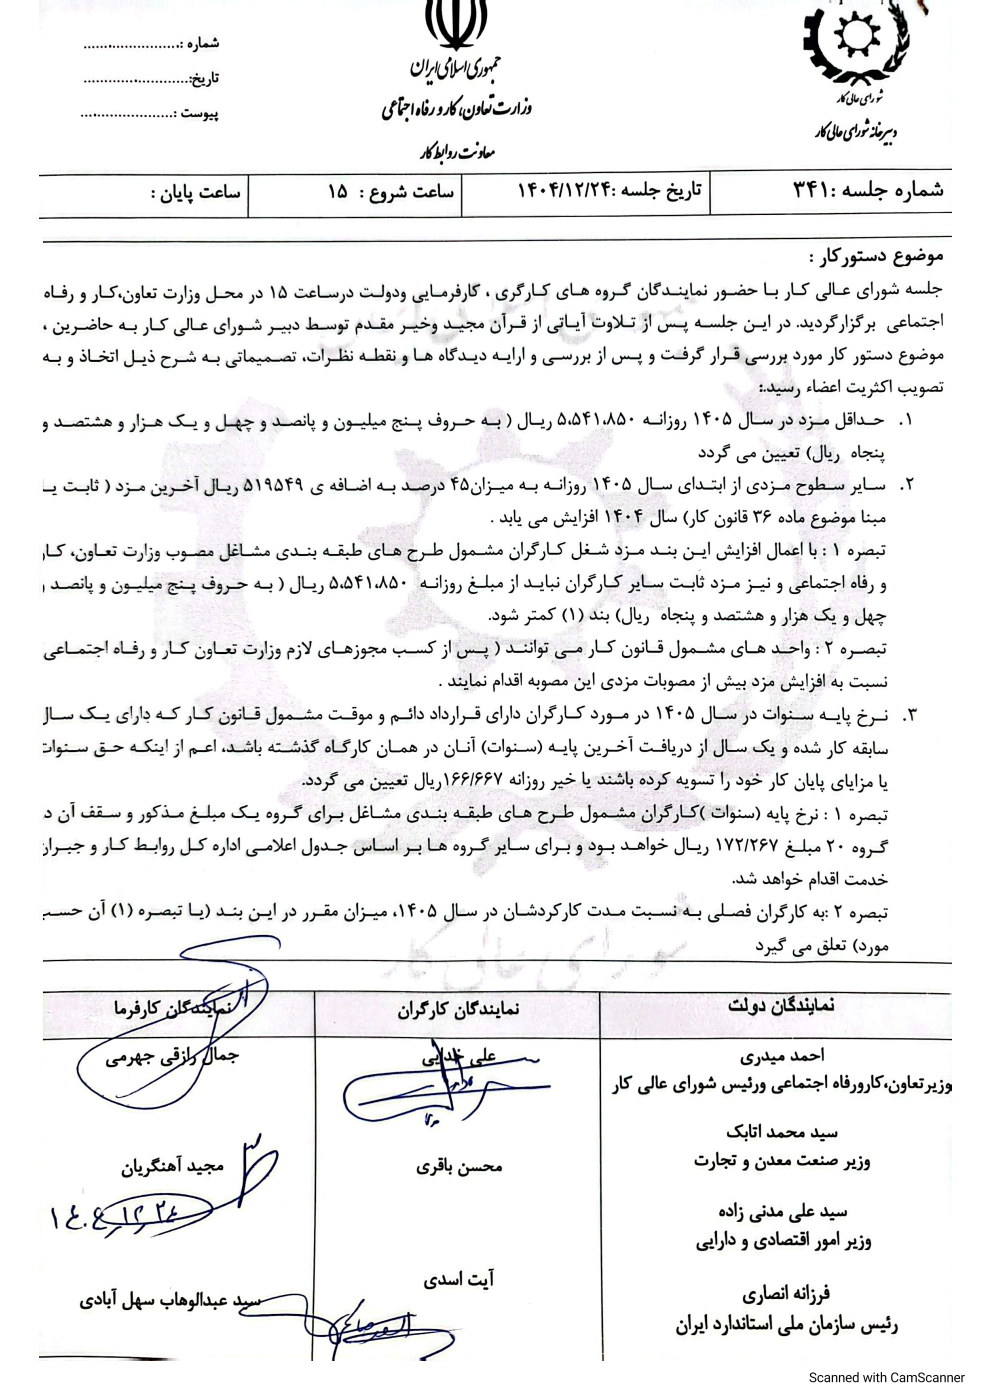 شماره :......................
تاریخ:........................
پیوست :.....................
جمهوری اسلامی ایران
وزارت تعاون، کار و رفاه اجتماعی
معاونت روابط کار
شورای عالی کار
دبیرخانه شورای عالی کار
شماره جلسه :۳۴۱ تاریخ جلسه :۱۴۰۴/۱۲/۲۴ ساعت شروع : ۱۵ ساعت پایان :
موضوع دستورکار :
جلسه شورای عالی کار با حضور نمایندگان گروه های کارگری ، کارفرمایی ودولت درساعت ۱۵ در محل وزارت تعاون،کار و رفاه
اجتماعی برگزارگردید. در این جلسه پس از تلاوت آیاتی از قرآن مجید وخیر مقدم توسط دبیر شورای عالی کار به حاضرین ،
موضوع دستور کار مورد بررسی قرار گرفت و پس از بررسی و ارایه دیدگاه ها و نقطه نظرات، تصمیماتی به شرح ذیل اتخاذ و به
تصویب اکثریت اعضاء رسید.:
۱. حداقل مزد در سال ۱۴۰۵ روزانه ۵،۵۴۱،۸۵۰ ریال ( به حروف پنج میلیون و پانصد و چهل و یک هزار و هشتصد و
پنجاه ریال) تعیین می گردد
۲. سایر سطوح مزدی از ابتدای سال ۱۴۰۵ روزانه به میزان۴۵ درصد به اضافه ی ۵۱۹۵۴۹ ریال آخرین مزد ( ثابت یا
مبنا موضوع ماده ۳۶ قانون کار) سال ۱۴۰۴ افزایش می یابد .
تبصره ۱ : با اعمال افزایش این بند مزد شغل کارگران مشمول طرح های طبقه بندی مشاغل مصوب وزارت تعاون، کار
و رفاه اجتماعی و نیز مزد ثابت سایر کارگران نباید از مبلغ روزانه ۵،۵۴۱،۸۵۰ ریال ( به حروف پنج میلیون و پانصد و
چهل و یک هزار و هشتصد و پنجاه ریال) بند (۱) کمتر شود.
تبصره ۲ : واحد های مشمول قانون کار می توانند ( پس از کسب مجوزهای لازم وزارت تعاون کار و رفاه اجتماعی)
نسبت به افزایش مزد بیش از مصوبات مزدی این مصوبه اقدام نمایند .
۳. نرخ پایه سنوات در سال ۱۴۰۵ در مورد کارگران دارای قرارداد دائم و موقت مشمول قانون کار که دارای یک سال
سابقه کار شده و یک سال از دریافت آخرین پایه (سنوات) آنان در همان کارگاه گذشته باشد، اعم از اینکه حق سنوات
یا مزایای پایان کار خود را تسویه کرده باشند یا خیر روزانه ۱۶۶/۶۶۷ریال تعیین می گردد.
تبصره ۱ : نرخ پایه (سنوات )کارگران مشمول طرح های طبقه بندی مشاغل برای گروه یک مبلغ مذکور و سقف آن در
گروه ۲۰ مبلغ ۱۷۲/۲۶۷ ریال خواهد بود و برای سایر گروه ها بر اساس جدول اعلامی اداره کل روابط کار و جبران
خدمت اقدام خواهد شد.
تبصره ۲ :به کارگران فصلی به نسبت مدت کارکردشان در سال ۱۴۰۵، میزان مقرر در این بند (یا تبصره (۱) آن حسب
مورد) تعلق می گیرد
شورای عالی کار
نمایندگان دولت نمایندگان کارگران نمایندگان کارفرما
احمد میدری علی خدایی جمال رازقی جهرمی
وزیرتعاون،کارورفاه اجتماعی ورئیس شورای عالی کار
سید محمد اتابک
وزیر صنعت معدن و تجارت محسن باقری مجید آهنگریان
۱۴۰۴٫۱۲٫۲۴
سید علی مدنی زاده
وزیر امور اقتصادی و دارایی
آیت اسدی سید عبدالوهاب سهل آبادی
فرزانه انصاری
رئیس سازمان ملی استاندارد ایران
Scanned with CamScanner